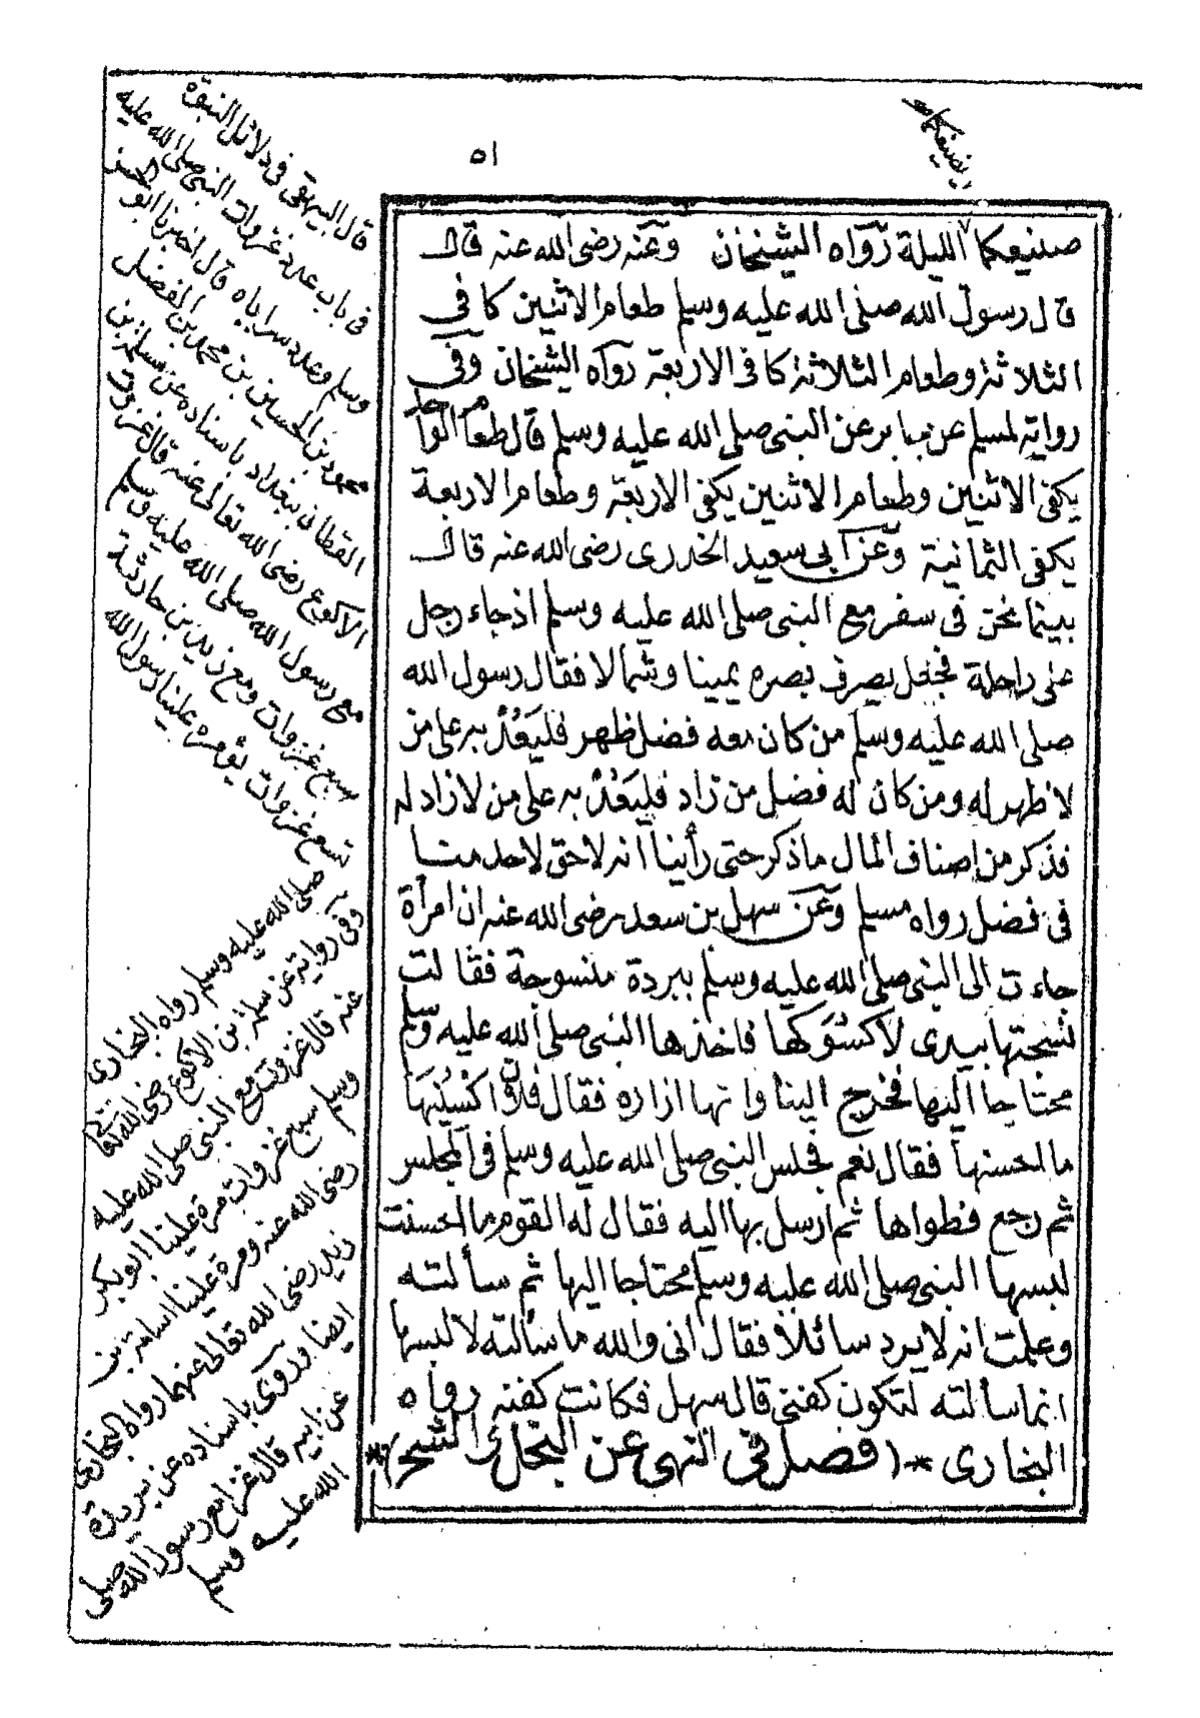 ٥١
بصنيعكما
صنيعكما الليلة رواه الشيخان وعنه رضى الله عنه قال
قال رسول الله صلى الله عليه وسلم طعام الاثنين كافى
الثلاثة وطعام الثلاثة كافى الاربعة رواه الشيخان وفى
رواية لمسلم عن جابر عن النبى صلى الله عليه وسلم قال طعام الواحد
يكفى الاثنين وطعام الاثنين يكفى الاربعة وطعام الاربعة
يكفى الثمانية وعن ابى سعيد الخدرى رضى الله عنه قال
بينما نحن فى سفر مع النبى صلى الله عليه وسلم اذ جاء رجل
على راحلة فجعل يصرف بصره يمينا وشمالا فقال رسول الله
صلى الله عليه وسلم من كان معه فضل ظهر فليَعُدْ به على من
لا ظهر له ومن كان له فضل من زاد فليَعُدْ به على من لا زاد له
فذكر من اصناف المال ما ذكر حتى رأينا انه لا حق لاحد منا
فى فضل رواه مسلم وعن سهل بن سعد رضى الله عنه ان امرأة
جاءت الى النبى صلى الله عليه وسلم ببردة منسوجة فقالت
نسجتها بيدى لاكسُوَكها فاخذها النبى صلى الله عليه وسلم
محتاجا اليها فخرج الينا وانها ازاره فقال فلان اكسُنِيهَا
ما احسنها فقال نعم فجلس النبى صلى الله عليه وسلم فى المجلس
ثم رجع فطواها ثم ارسل بها اليه فقال له القوم ما احسنت
لبسها النبى صلى الله عليه وسلم محتاجا اليها ثم سألته
وعلمت انه لا يرد سائلا فقال انى والله ما سألته لالبسها
انما سألته لتكون كفنى قال سهل فكانت كفنه رواه
البخارى * (فصل فى النهى عن البخل والشح) *
قال البيهقى فى دلائل النبوة
فى باب عدد غزوات النبى صلى الله عليه
وسلم وعدد سراياه قال اخبرنا ابو الحسن
محمود بن الحسين بن محمد بن المفضل
القطان ببغداد باسناده عن سلمة بن
الاكوع رضى الله تعالى عنه قال غزوت
مع رسول الله صلى الله عليه وسلم
سبع غزوات ومع زيد بن حارثة
تسع غزوات يؤمره علينا رسول الله
صلى الله عليه وسلم رواه البخارى
وفى رواية عن سلمة بن الاكوع رضى الله تعالى
عنه قال غزوت مع النبى صلى الله عليه
وسلم سبع غزوات مرة علينا ابو بكر
رضى الله عنه ومرة علينا اسامة بن
زيد رضى الله تعالى عنهما رواه البخارى
ايضا وروى باسناده عن بريدة
عن ابيه قال غزا مع رسول الله صلى
الله عليه وسلم